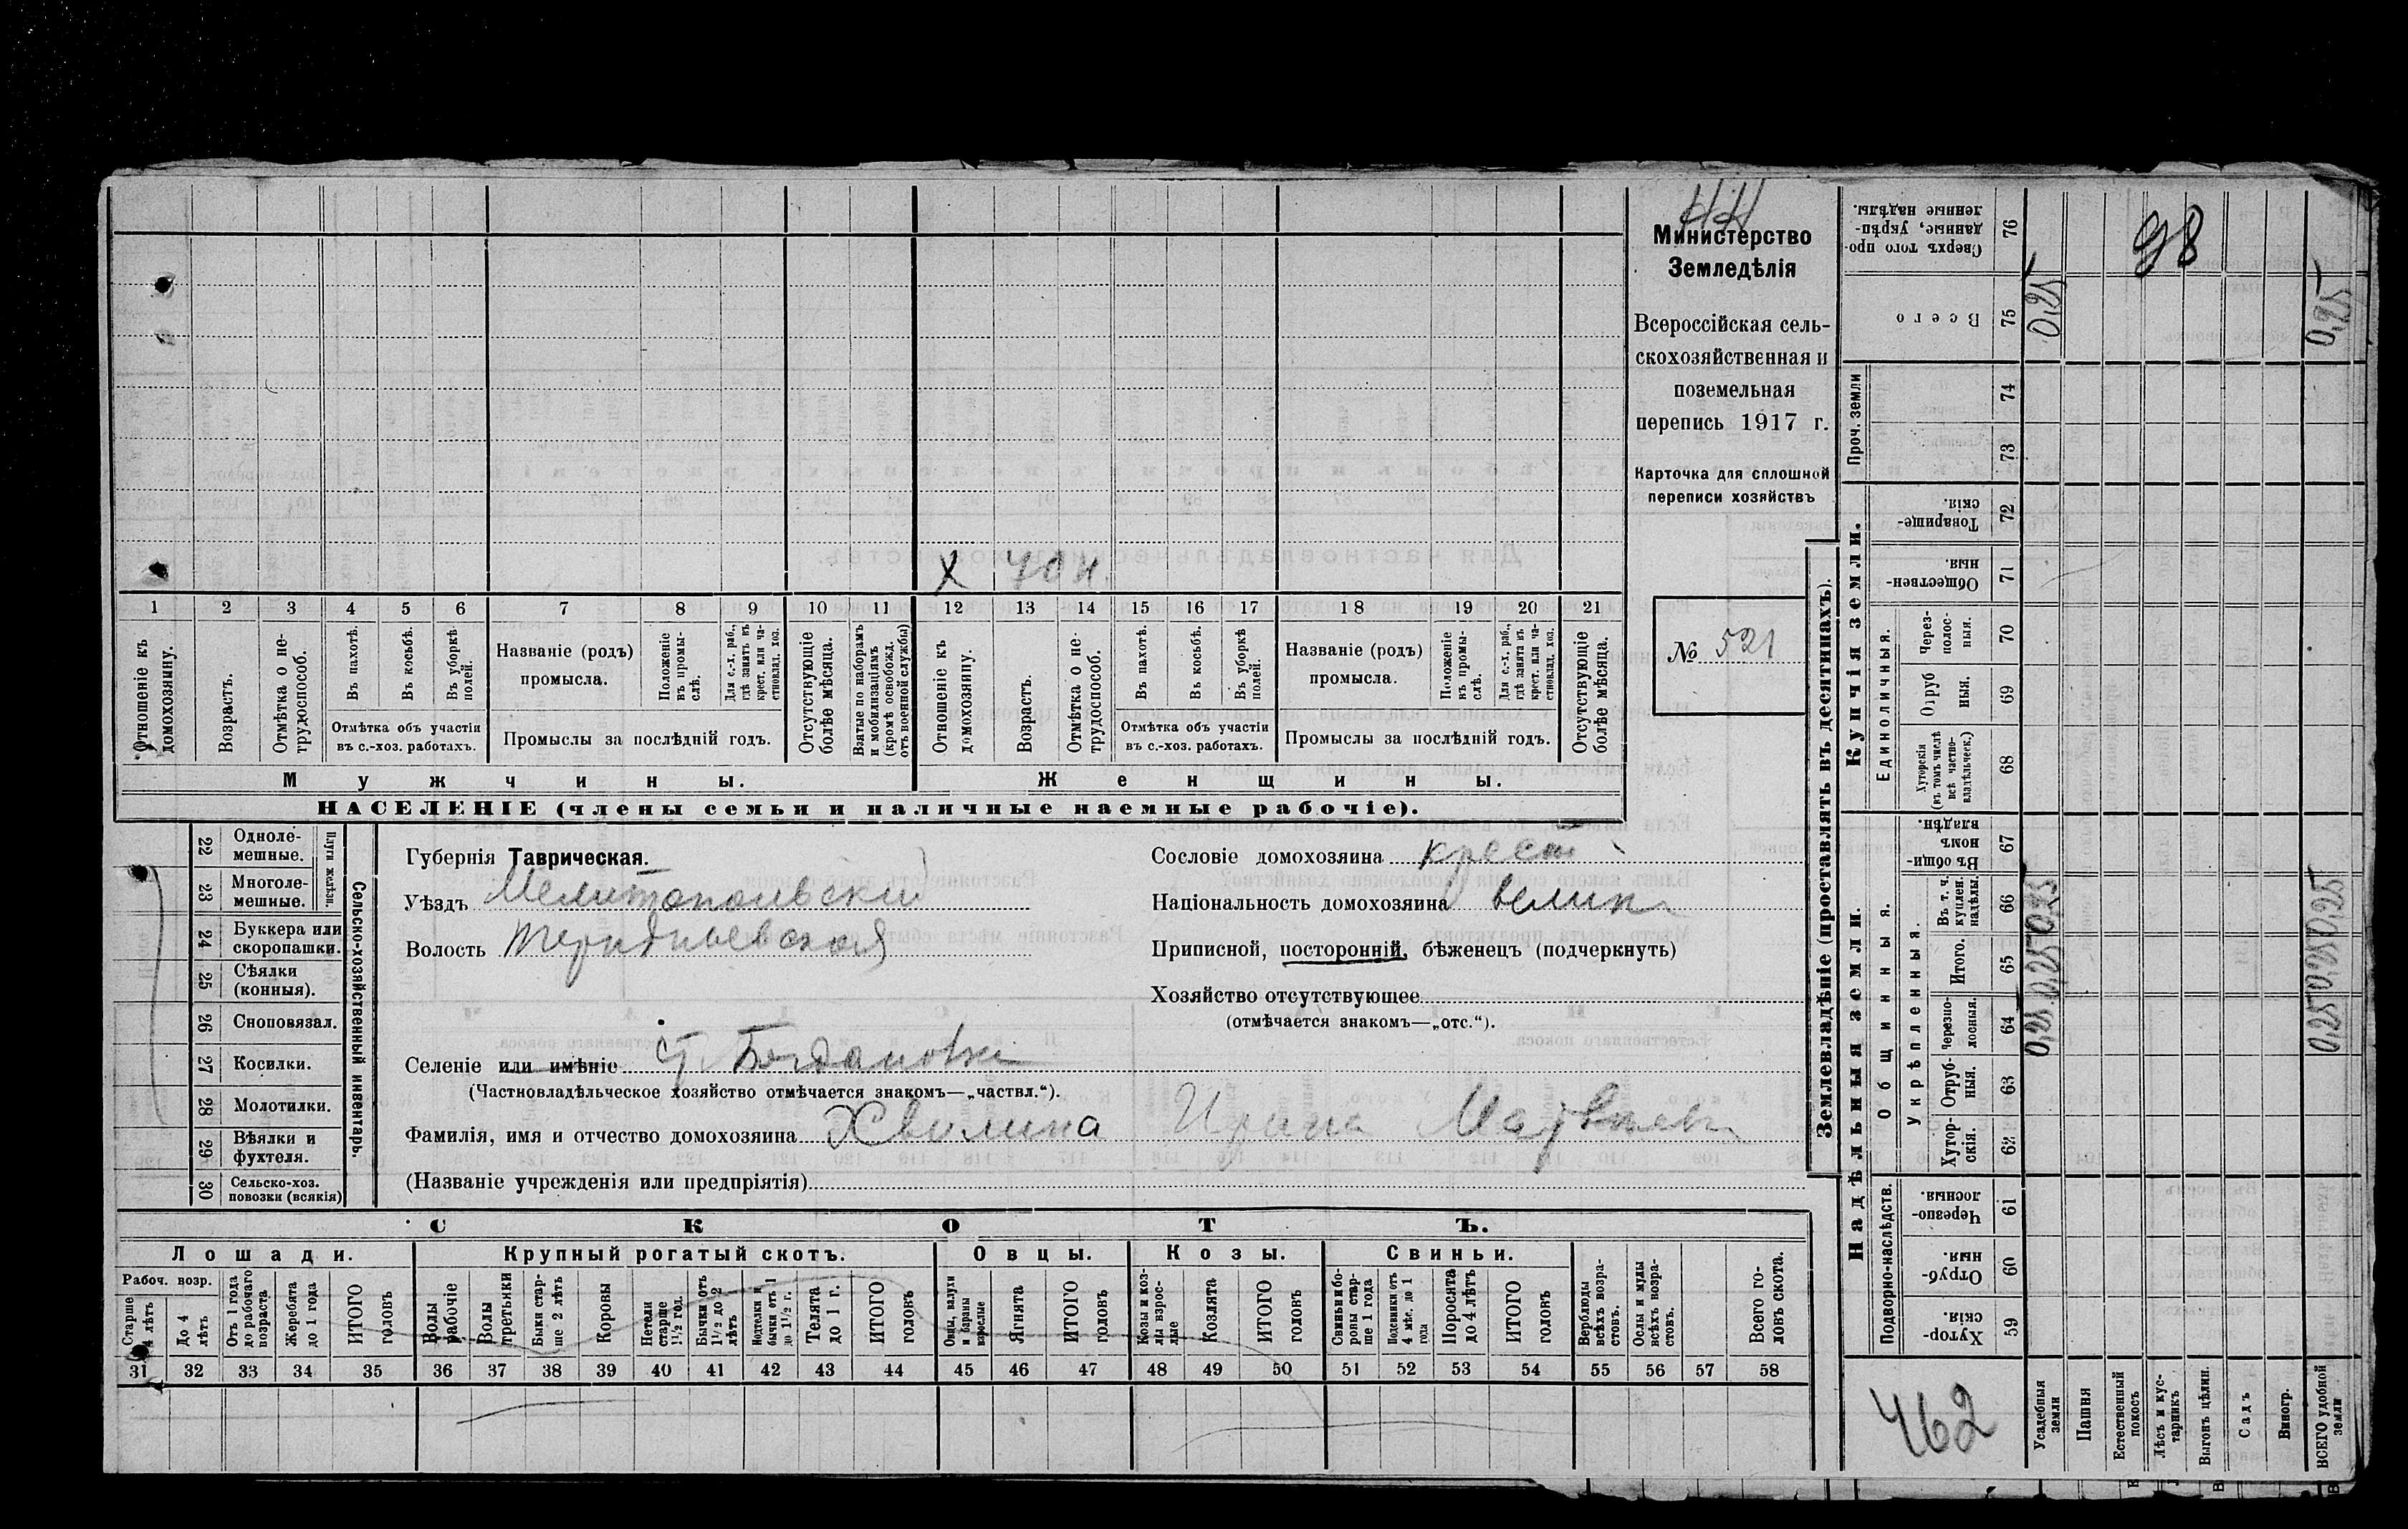 Министерство
Земледѣлія
Всероссійская сель-
скохозяйственная и
поземельная
перепись 1917 г.
Карточка для сплошной
переписи хозяйствъ
№ 521
Х 70 н.
1 2 3 4 5 6 7 8 9 10 11 12 13 14 15 16 17 18 19 20 21
Отношеніе къ домохозяину.
Возрастъ.
Отмѣтка о не-трудоспособ.
Въ пахотѣ.
Въ косьбѣ.
Въ уборкѣ полей.
Отмѣтка объ участіи
въ с.-хоз. работахъ.
Названіе (родъ)
промысла.
Положеніе въ промы-слѣ.
Для с.-х. раб., гдѣ занятъ въ крест. или ча-стновлад. хоз.
Промыслы за послѣдній годъ.
Отсутствующіе болѣе мѣсяца.
Взятые по наборамъ и мобилизаціямъ (кромѣ освобожд. отъ военной службы)
Отношеніе къ домохозяину.
Возрастъ.
Отмѣтка о не-трудоспособ.
Въ пахотѣ.
Въ косьбѣ.
Въ уборкѣ полей.
Отмѣтка объ участіи
въ с.-хоз. работахъ.
Названіе (родъ)
промысла.
Положеніе въ промы-слѣ.
Для с.-х. раб., гдѣ занята въ крест. или ча-стновлад. хоз.
Промыслы за послѣдній годъ.
Отсутствующіе болѣе мѣсяца.
Мужчины.
Женщины.
НАСЕЛЕНІЕ (члены семьи и наличные наемные рабочіе).
22 Одноле-мешные.
23 Многоле-мешные.
Плуги желѣзн.
24 Буккера или скоропашки.
25 Сѣялки (конныя).
26 Сноповязал.
27 Косилки.
28 Молотилки.
29 Вѣялки и фухтеля.
30 Сельско-хоз. повозки (всякія)
Сельско-хозяйственный инвентарь.
Губернія Таврическая.
Уѣздъ Мелитопольскій
Волость
Селеніе или имѣніе Богдановка
(Частновладѣльческое хозяйство отмѣчается знакомъ—„частвл.“).
Фамилія, имя и отчество домохозяина Хвилина Ирина Матвѣевн
(Названіе учрежденія или предпріятія)
Сословіе домохозяина крест
Національность домохозяина велик
Приписной, посторонній, бѣженецъ (подчеркнуть)
Хозяйство отсутствующее
(отмѣчается знакомъ—„отс.“).
СКОТЪ.
Лошади. Крупный рогатый скотъ. Овцы. Козы. Свиньи.
Рабоч. возр.
Старше 4 лѣтъ
До 4 лѣтъ
Отъ 1 года до рабочаго возраста
Жеребята до 1 года
ИТОГО головъ
Волы рабочіе
Волы третьяки
Быки стар-ше 2 лѣтъ
Коровы
Нетели старше 1½ год.
Бычки отъ 1½ до 2 лѣтъ
Нетелки и бычки отъ 1 до 1½ г.
Телята до 1 г.
ИТОГО головъ
Овцы, валухи и бараны взрослые
Ягнята
ИТОГО головъ
Козы и коз-лы взрос-лые
Козлята
ИТОГО головъ
Свиньи и бо-ровы стар-ше 1 года
Подсвинки отъ 4 мѣс. до 1 года
Поросята до 4 лѣтъ
ИТОГО головъ
Верблюды всѣхъ возра-стовъ.
Ослы и мулы всѣхъ возра-стовъ.
Всего го-ловъ скота.
31 32 33 34 35 36 37 38 39 40 41 42 43 44 45 46 47 48 49 50 51 52 53 54 55 56 57 58
Землевладѣніе (проставлять въ десятинахъ).
Купчія земли.
Надѣльныя земли.
Сверхъ того про-данные, укрѣп-ленные надѣлы. 76
98
Всего 75 0,25 0,25
Проч. земли 74 73
Товарище-скія. 72
Обществен-ныя. 71
Единоличныя.
Через-полос-ныя. 70
Отруб-ныя. 69
Хуторскія (въ томъ числѣ всѣ частно-владѣльческ.) 68
Общинныя.
Въ общин-номъ владѣн. 67
Укрѣпленныя.
Въ т. ч. куплен. надѣлы. 66 0,25 0,25
Итого. 65 0,25 0,25
Черезпо-лосныя. 64 0,25 0,25
Отруб-ныя. 63
Хутор-скія. 62
Подворно-наслѣдств.
Черезпо-лосныя. 61
Отруб-ныя. 60
Хутор-скія. 59
462
Усадебныя земли
Пашня
Естественный покосъ
Лѣсъ и кус-тарникъ
Выгонъ цѣлин.
Садъ
Виногр.
ВСЕГО удобной земли